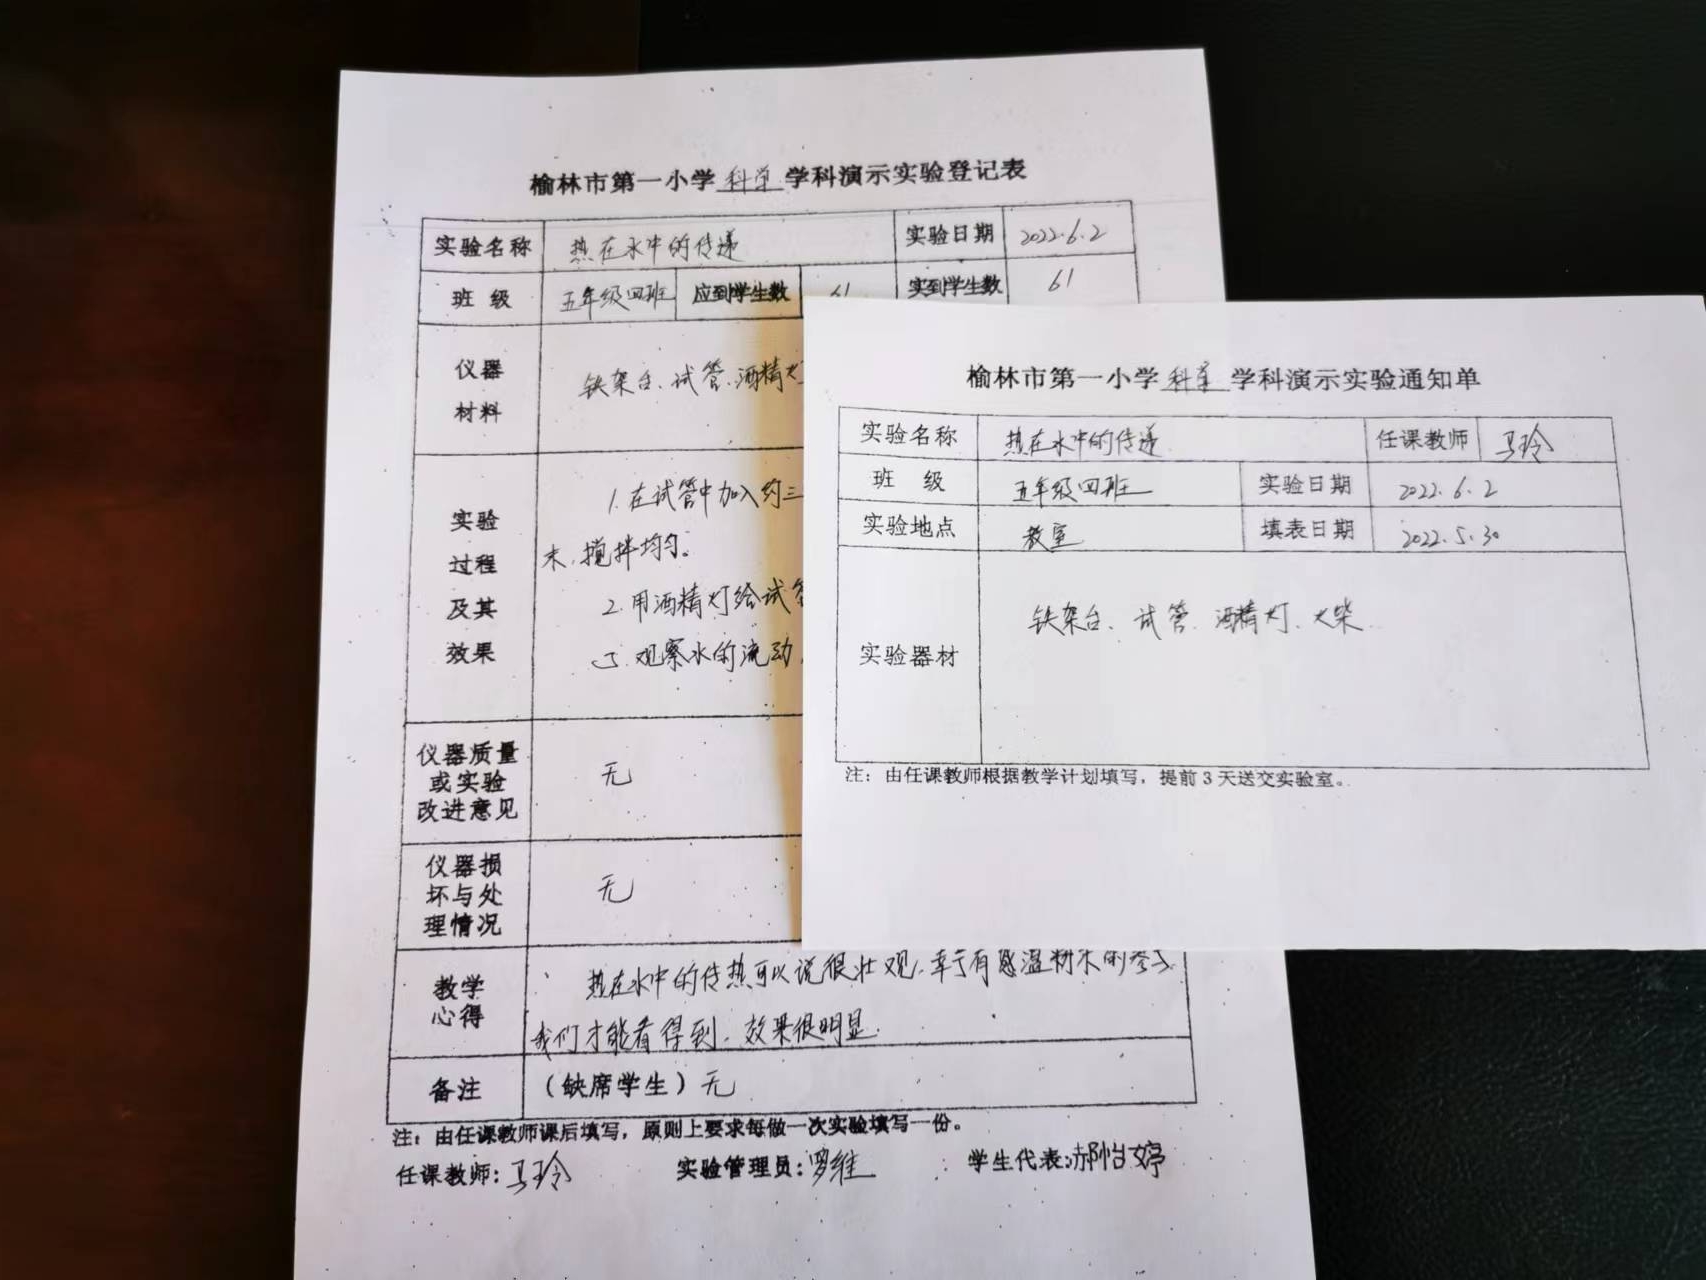 榆林市第一小学 科学 学科演示实验登记表
实验名称 热在水中的传递 实验日期 2022.6.2
班 级 五年级四班 应到学生数 61 实到学生数 61
仪器
材料
铁架台、试管、酒精灯
实验
过程
及其
效果
1.在试管中加入约三
末,搅拌均匀。
2.用酒精灯给试管
3.观察水的流动
仪器质量
或实验
改进意见
无
仪器损
坏与处
理情况
无
教学
心得
热在水中的传热可以说很壮观,幸亏有感温粉末的参与
我们才能看得到.效果很明显.
备注 (缺席学生)无
注:由任课教师课后填写,原则上要求每做一次实验填写一份。
任课教师:马玲 实验管理员:罗维 学生代表:郝怡婷
榆林市第一小学 科学 学科演示实验通知单
实验名称 热在水中的传递 任课教师 马玲
班 级 五年级四班 实验日期 2022.6.2
实验地点 教室 填表日期 2022.5.30
实验器材 铁架台、试管、酒精灯、火柴.
注:由任课教师根据教学计划填写,提前3天送交实验室。